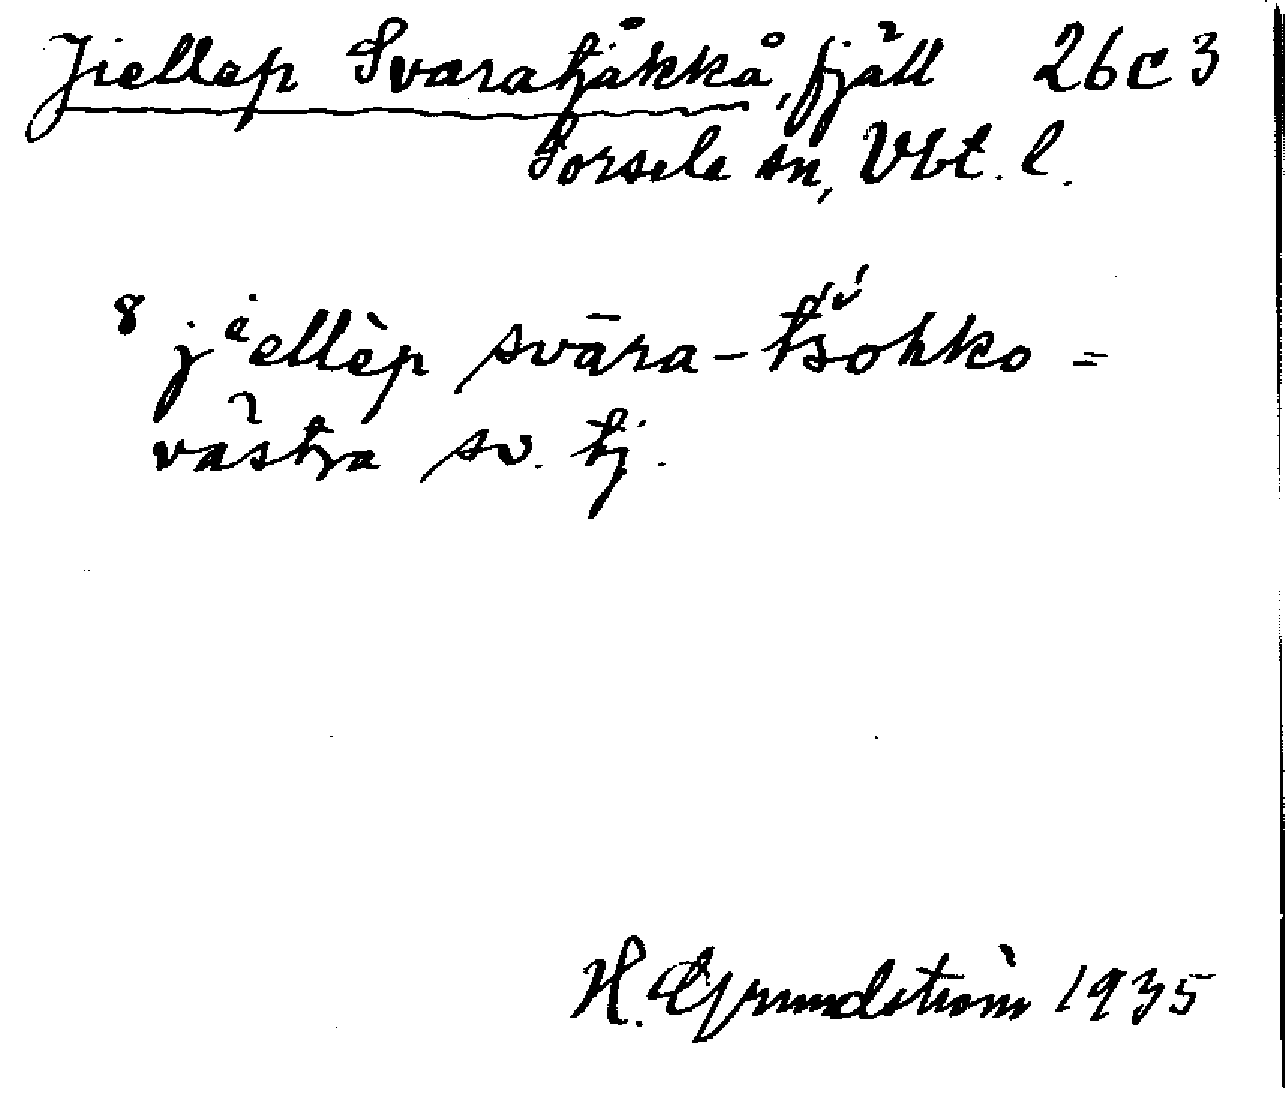 Jiellep Svaratjåkkå, fjäll 26c3
Sorsele sn, Vbt. l.
8 jⁱellèp svāra-tš́ohko =
västra sv. tj.
H. Grundström 1935